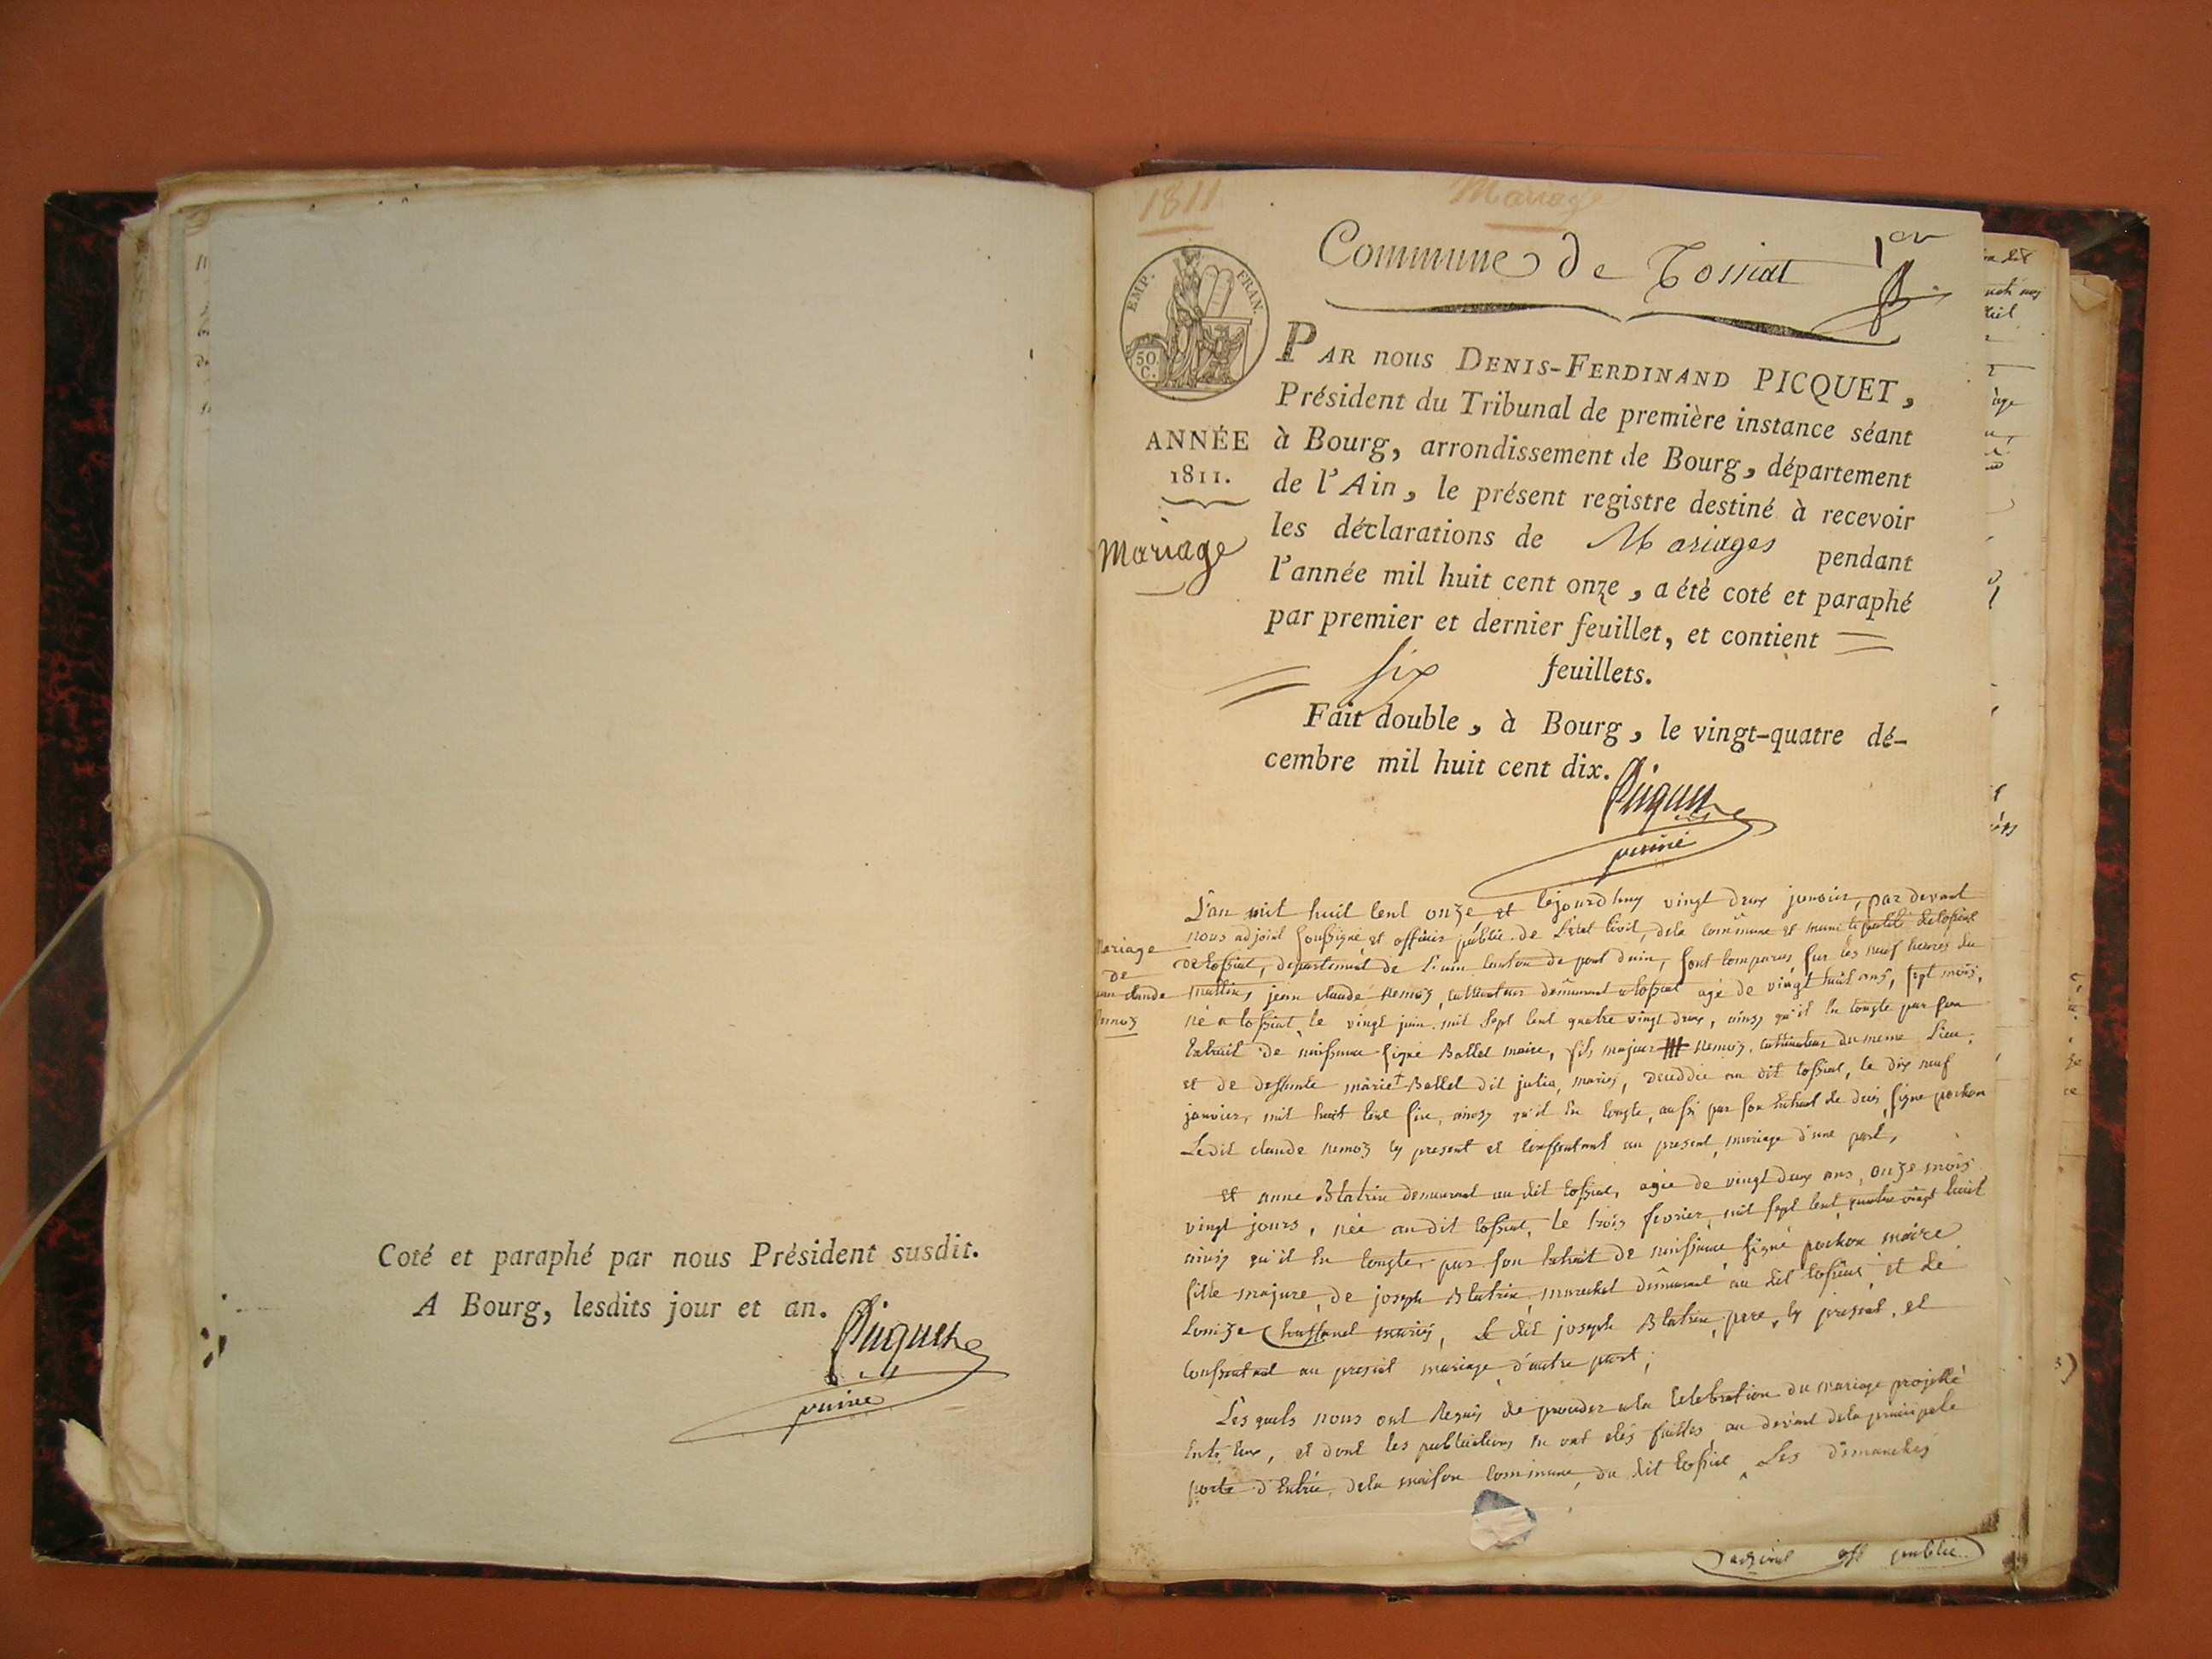 Coté et paraphé par nous Président susdit.
A Bourg, lesdits jour et an.
1811
Mariage
Commune de Tossiat
1er
EMP. FRAN.
50 C.
ANNÉE
1811.
Mariage
PAR nous DENIS-FERDINAND PICQUET,
Président du Tribunal de première instance séant
à Bourg, arrondissement de Bourg, département
de l'Ain, le présent registre destiné à recevoir
les déclarations de Mariages pendant
l'année mil huit cent onze, a été coté et paraphé
par premier et dernier feuillet, et contient
six feuillets.
Fait double, à Bourg, le vingt-quatre dé-
cembre mil huit cent dix.
Mariage
De
claude
L'an mil huit cent onze et cejourdhuy vingt deux janvier, par devant
nous adjoint soussigné et officier public de L'état Civil, dela commune et
de tossiat, departement de L'ain canton de pont dain, sont comparus sur les neuf heures du
mattin, jean claude Nemoz, cultivateur demeurant a tossiat agé de vingt huit ans, sept mois,
né a tossiat le vingt juin mil sept cent quatre vingt deux, ainsy qu'il en conste par son
Extrait de naissance signé Ballet maire, fils majeur Nemoz, cultivateur du meme Lieu,
et de deffunte marie Ballet dit julia, mariés, decedée au dit tossiat, le dix neuf
janvier, mil huit cent six, ainsy qu'il en conste, aussi par son Extrait de deces signé pochon
Ledit claude Nemoz cy present et consentant au present mariage d'une part,
et anne Blatrix demeurant au dit tossiat, agée de vingt deux ans, onze mois
vingt jours, née au dit tossiat, le trois fevrier mil sept cent quatre vingt huit
ainsy qu'il en conste, par son Extrait de naissance signé pochon maire
fille majeure, de joseph Blatrix, marechal demeurant au dit tossiat, et de
Louize mariés, Le dit joseph Blatrix, pere, cy present, et
consentant au present mariage d'autre part;
Les quels nous ont Requis de proceder a la Celebration du mariage projetté
Entr'Eux, et dont les publications en ont étés faittes au devant dela principale
porte d'Entrée, dela maison commune, du dit tossiat, Les dimanches
public